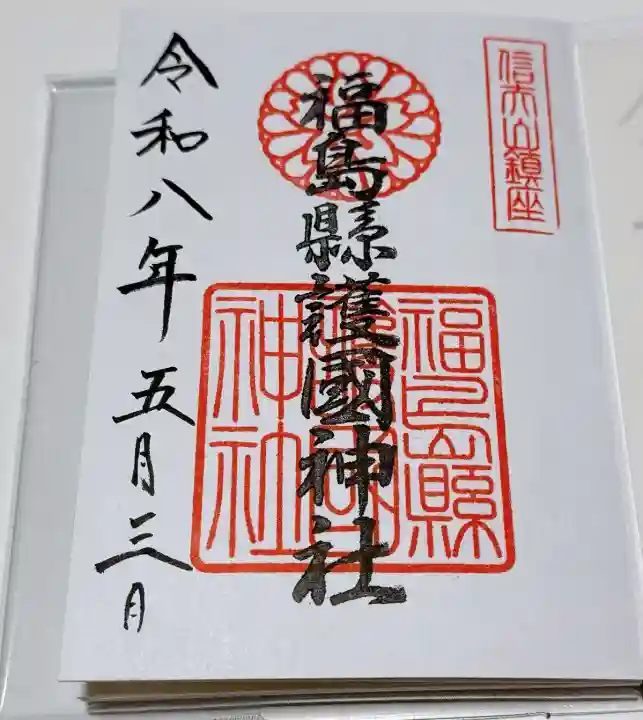 信夫山鎮座
福島縣護國神社
福島縣
神社
令和八年五月三日